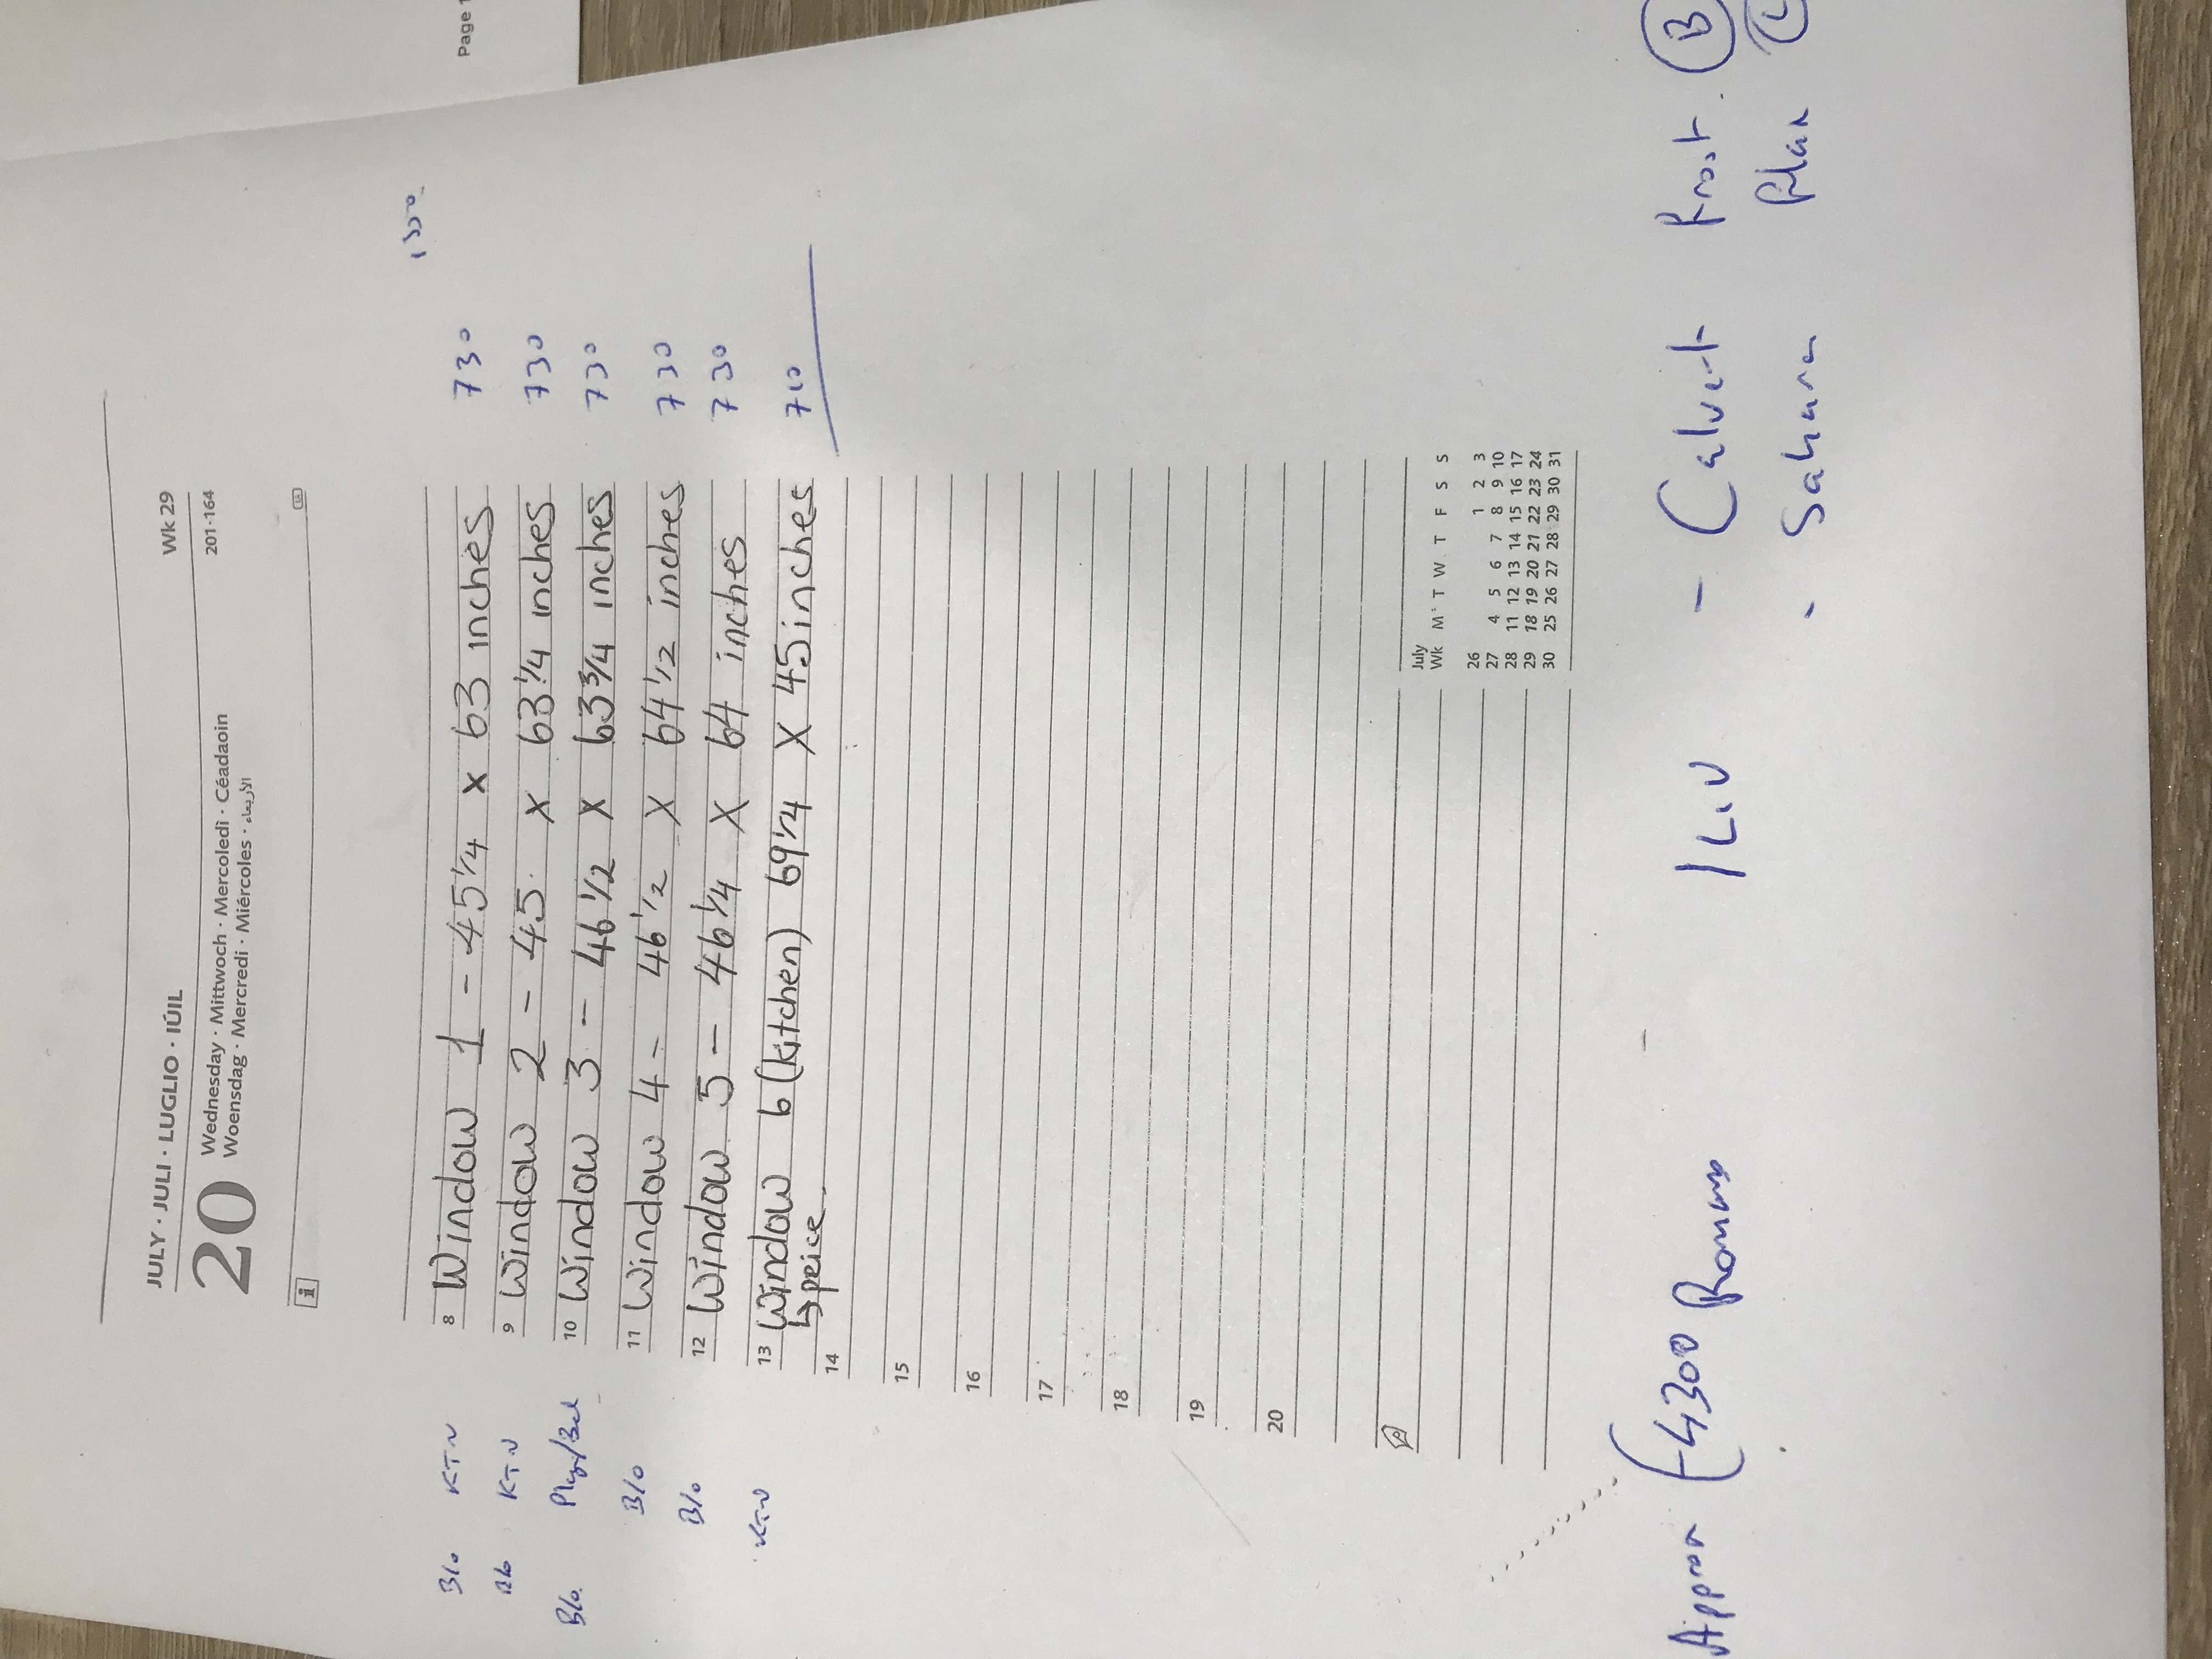 Page 1
JULY · JULI · LUGLIO · IÚIL
Wk 29
20 Wednesday · Mittwoch · Mercoledì · Céadaoin
Woensdag · Mercredi · Miércoles · الأربعاء
201-164
1300
B/o KTN 8 Window 1 - 45 1/4 x 63 inches 730
B/o KTN 9 Window 2 - 45 x 63 1/4 inches 730
B/o. Play/Bed 10 Window 3 - 46 1/2 x 63 3/4 inches 730
B/o 11 Window 4 - 46 1/2 X 64 1/2 inches 730
B/o 12 Window 5 - 46 1/4 X 64 inches 730
KTN 13 Window 6 (kitchen) 69 1/4 X 45 inches 710
14 ↳ peice
15
16
17
18
19
20
July
Wk M T W T F S S
26 1 2 3
27 4 5 6 7 8 9 10
28 11 12 13 14 15 16 17
29 18 19 20 21 22 23 24
30 25 26 27 28 29 30 31
Approx £4300 Romans - Calvert Frost. B
- Sahara